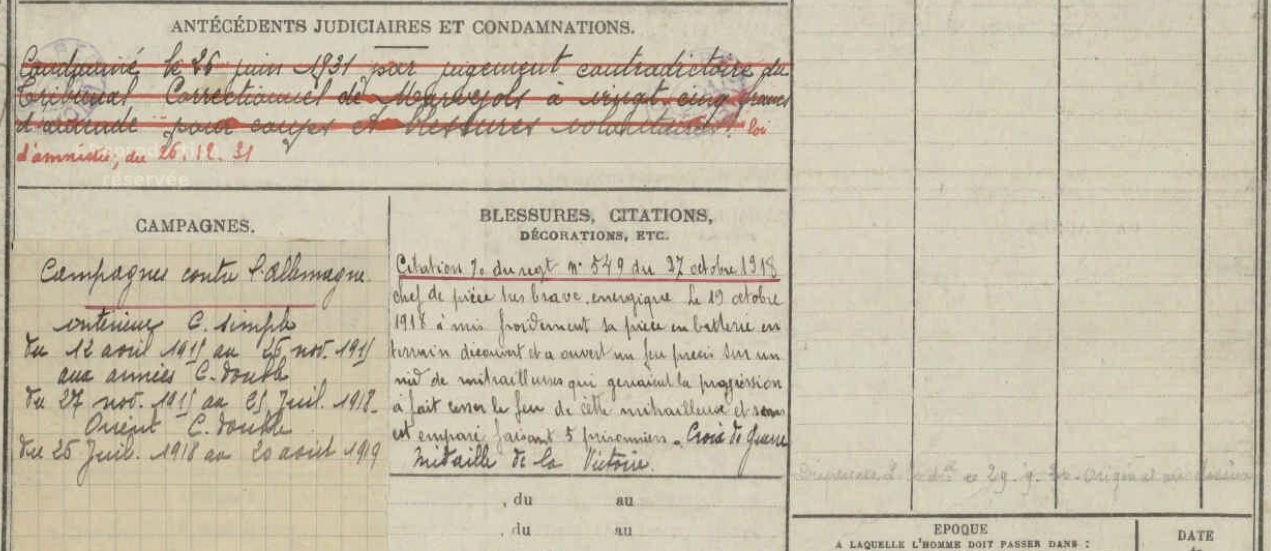 ANTÉCÉDENTS JUDICIAIRES ET CONDAMNATIONS.
Condamné le 26 juin 1931 par jugement contradictoire du
Tribunal Correctionnel de Marvejols à vingt cinq francs
d'amende pour coups et blessures volontaires. loi
d'amnistie, du 26.12.31
réservée
CAMPAGNES.
Campagnes contre l'Allemagne.
intérieur C. simple
du 12 avril 1915 au 26 nov. 1915
aux armées C. double
du 27 nov. 1915 au 25 Juil. 1918.
Orient C. double
du 26 Juil. 1918 au 20 août 1919
BLESSURES, CITATIONS,
DÉCORATIONS, ETC.
Citation du regt n° 549 du 27 octobre 1918
chef de pièce très brave, energique. Le 19 octobre
1918 à mis froidement sa pièce en batterie en
terrain découvert et a ouvert un feu precis sur un
nid de mitrailleuses qui genaient la progression
à fait cesser le feu de cette mitrailleuse et
est emparé faisant 5 prisonniers. Croix de Guerre
Médaille de la Victoire.
, du au
. du au
EPOQUE
A LAQUELLE L'HOMME DOIT PASSER DANS :
DATE